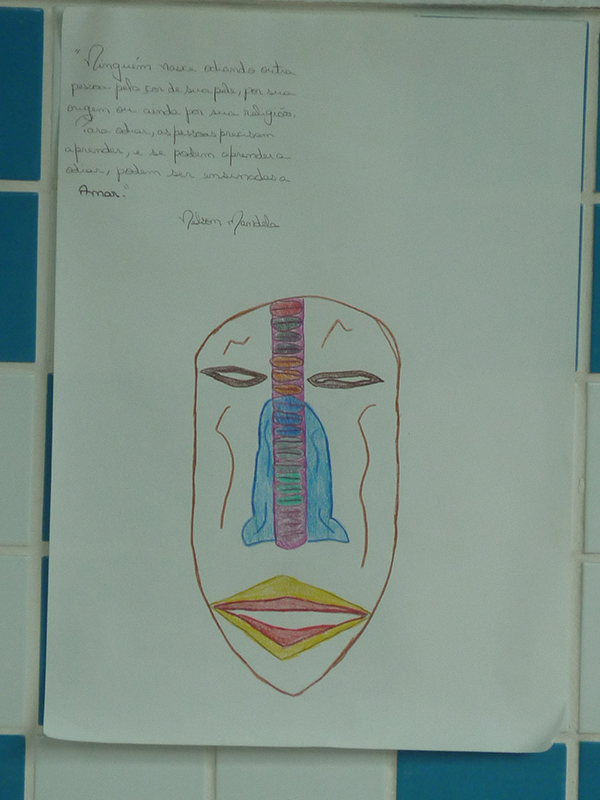 "Ninguém nasce odiando outra
pessoa pela cor de sua pele, por sua
origem ou ainda por sua religião.
Para odiar, as pessoas precisam
aprender, e se podem aprender a
odiar, podem ser ensinadas a
Amar."
Nelson Mandela